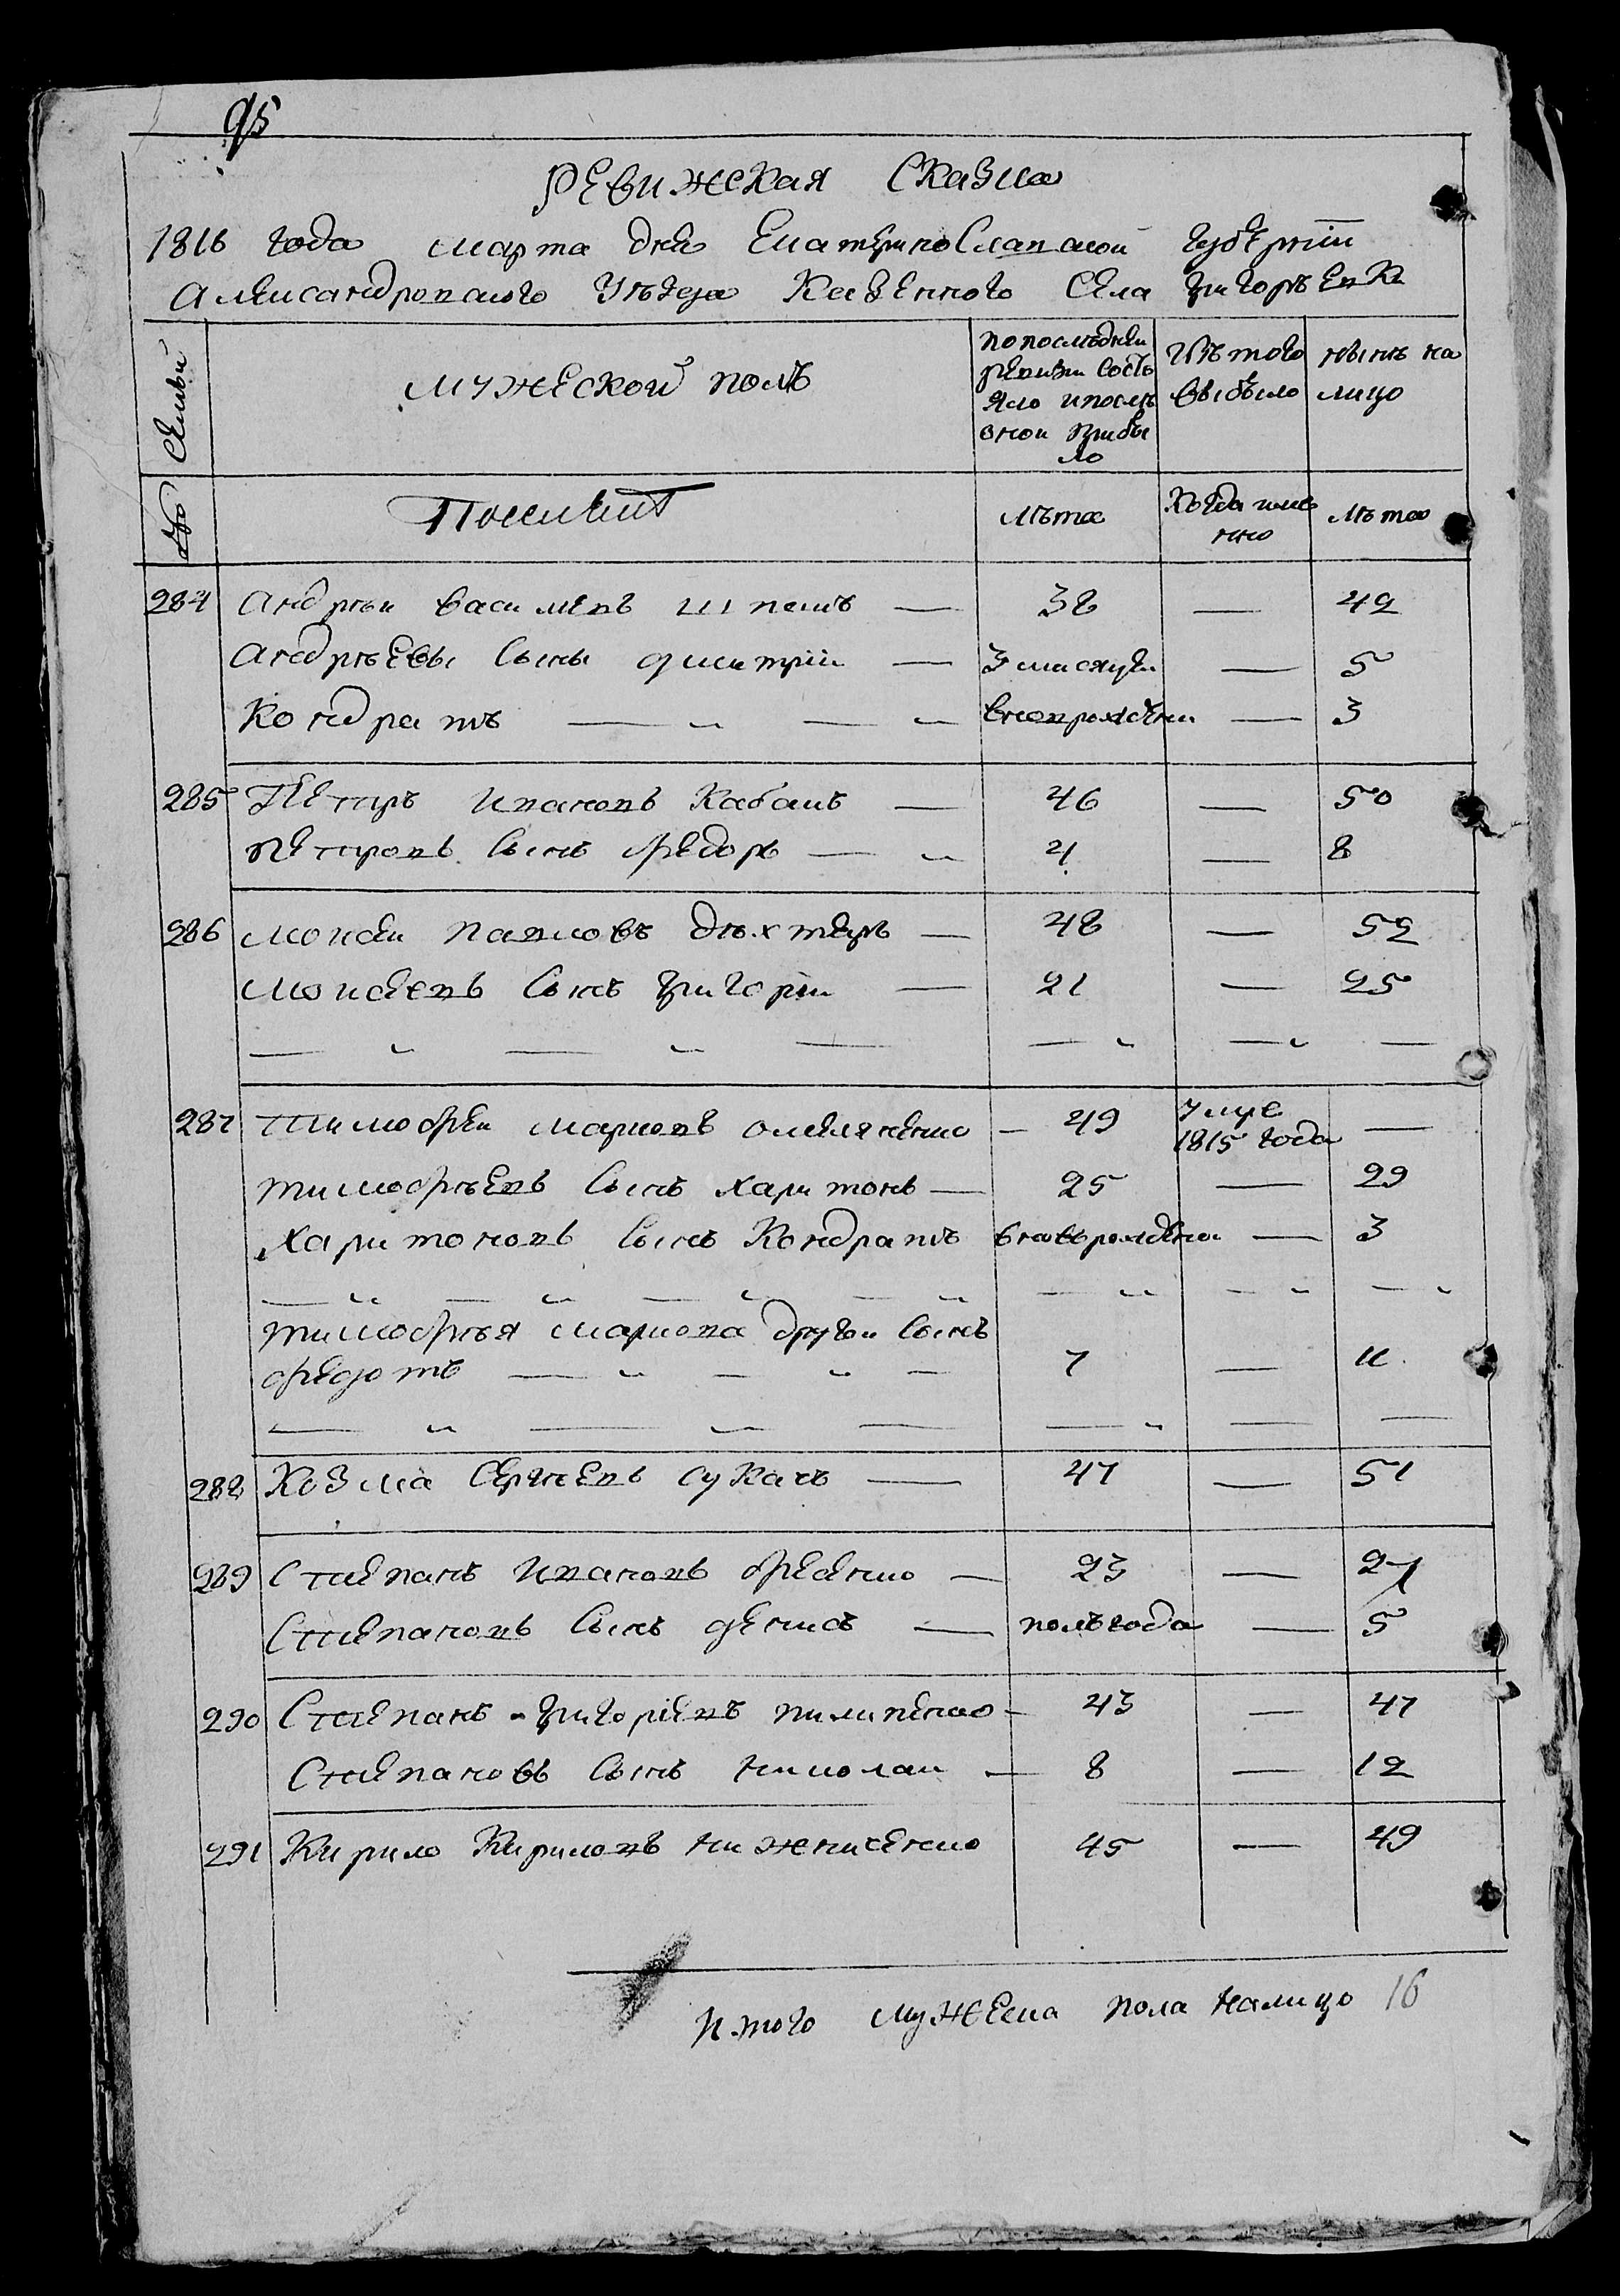 95
Ревижская Сказка
1816 года марта дня Екатеринославской губернии
Александровского Уѣзда Казенного Села Григорьевки
Семьи
мужеской полъ
по послѣдней
ревизи состо
яло и послѣ
оной прибы
ло
Изъ того
выбыло
нынѣ на
лицо
Лѣта
Когда имѣ
нно
Лѣта
284 Андрѣи васильевъ — 38 — 42
Андрѣевы сыны дмитрiи — 3 мисяцеи — 5
Кондратъ — „ — „ вновърожденеи — 3
285 Петръ Ивановъ Кабакъ — 46 — 50
Петровъ сынъ Федоръ — „ 4 — 8
286 моисеи павловъ дѣхтяръ — 48 — 52
Моисеевъ сынъ григорiи — 21 — 25
— „ — „ — — „ — „ —
287 тимофеи марковъ омеляненко — 49 умре
1815 года —
тимофѣевъ сынъ харитонъ — 25 — 29
Харитоновъ сынъ Кондратъ вновърожденеи — 3
— „ — „ — „ — „ — „ — „ — „
тимофѣя маркова другои сынъ
федотъ — „ — „ — 7 — 11
— „ — „ — — „ — —
288 Козма Сергеевъ сукачъ — 47 — 51
289 Степанъ Ивановъ фесенко — 23 — 27
Степановъ сынъ денисъ — полъгода — 5
290 Степанъ григорiевъ пилипенко — 43 — 47
Степановъ сынъ николаи — 8 — 12
291 Кирило Кириловъ нижниченко 45 — 49
Итого мужеска пола налицо 16